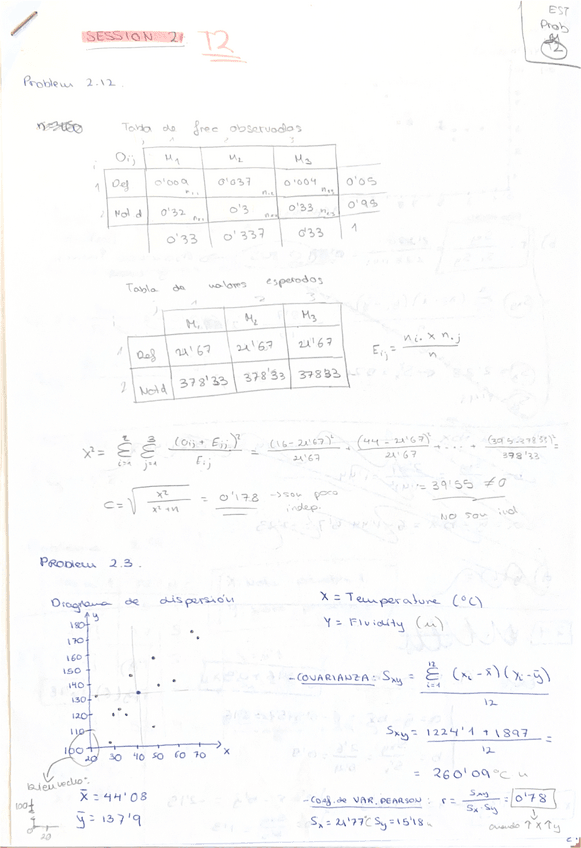 EST
Prob
T2
SESSION 2 T2
Problem 2.12.
Tabla de frec observadas
Oij M1 M2 M3
Def 0'009 n11 0'037 n12 0'004 n13 0'05
Not d 0'32 n21 0'3 n22 0'33 n23 0'95
0'33 0'337 0'33 1
Tabla de valores esperados
M1 M2 M3
Def 21'67 21'67 21'67
Notd 378'33 378'33 378'33
Eij = ni. x n.j / n
X² = Σ i=1 2 Σ j=1 3 (Oij + Eij)² / Eij = (16-21'67)² / 21'67 + (44-21'67)² / 21'67 + ... + (395-378'33)² / 378'33 =
= 39'55 ≠ 0
No son ind
C = √ x² / x²+n = 0'178 → son para indep.
PROBLEM 2.3.
Diagrama de dispersión
X = Temperature (°C)
Y = Fluidity (u)
y
180
170
160
150
140
130
120
110
100
20 30 40 50 60 70 x
- COVARIANZA: Sxy = Σ i=1 12 (xi - x̄)(yi - ȳ) / 12
Sxy = 1224'1 + 1897 / 12 =
= 260'09 °C u
- Coef. de VAR. PEARSON: r = Sxy / Sx · Sy = 0'78
Sx = 21'77°C Sy = 15'18u
cuando ↑X ↑y
bien hecho:
100
20
x̄ = 44'08
ȳ = 137'9